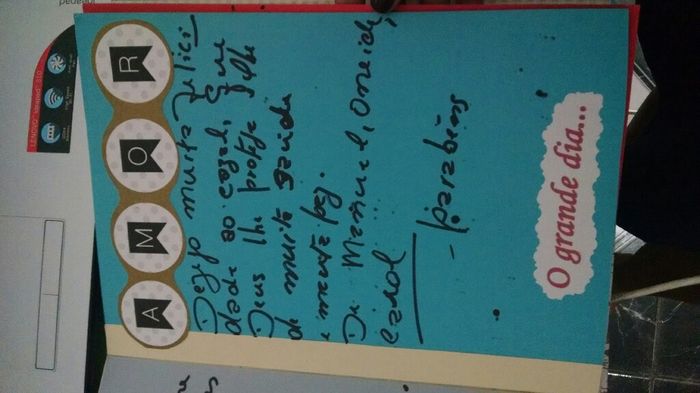 AMOR
Dezejo muita felici
dade ao cazal, que
Deus lhe proteja e lhe
de muita saúde
e muita paz.
De Manuel, Oneide,
Carol
- parabéns
O grande dia...